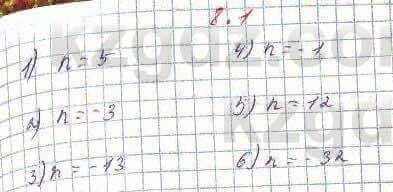 8.1
1) n = 5
2) n = -3
3) n = -13
4) n = -1
5) n = 12
6) n = -32